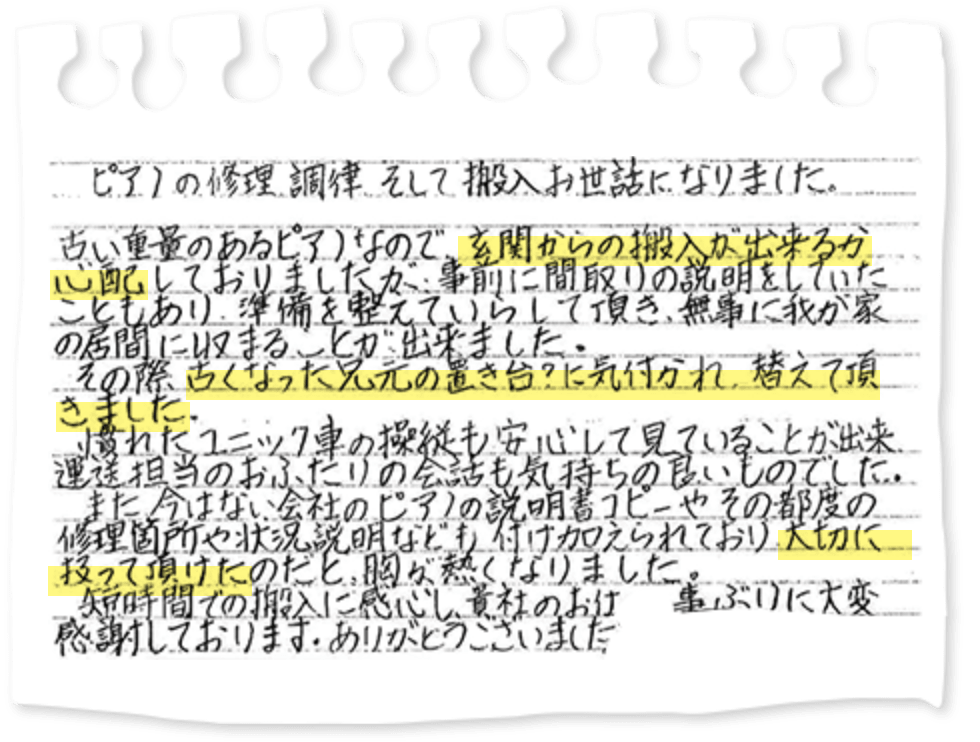 ピアノの修理、調律、そして搬入お世話になりました。
古い重量のあるピアノなので、玄関からの搬入が出来るか
心配しておりましたが、事前に間取りの説明をしていた
こともあり、準備を整えていらして頂き、無事に我が家
の居間に収まることが出来ました。
その際、古くなった足元の置き台?に気付かれ、替えて頂
きました。
慣れたユニック車の操縦も安心して見ていることが出来、
運送担当のおふたりの会話も気持ちの良いものでした。
また今はない会社のピアノの説明書コピーや その都度の
修理箇所や状況説明なども付け加えられており、大切に
扱って頂けたのだと、胸が熱くなりました。
短時間での搬入に感心し、貴社のお仕 事ぶりに大変
感謝しております。ありがとうございました